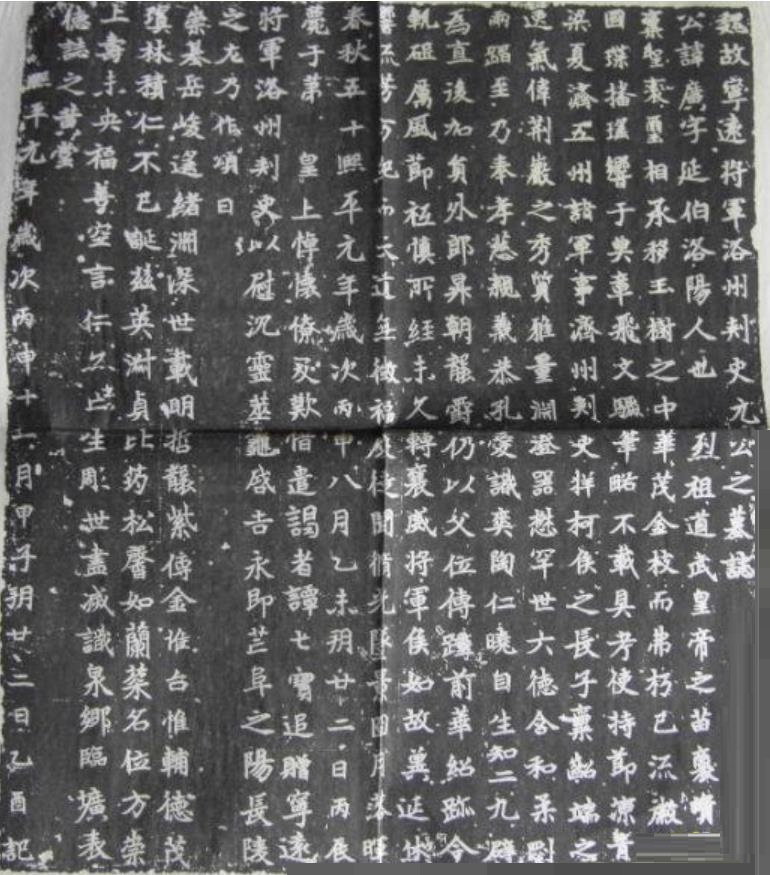 魏故寧遠將軍洛州刾史元公之墓誌
公諱廣字延伯洛陽人也烈祖道武皇帝之苗裔
稟聖裹璽相承移玉樹之中華茂金枝而弗朽已流
國璞播瑾響于典章飛文驪筆略不載具考使持節涼青
梁夏濟五州諸軍事濟州刾史牂柯侯之長子稟
逸氣偉荊巖之秀質雅量淵澄器懋罕世六德含和柔剛
兩蹈至乃奉孝慈親義恭孔愛識奕陶仁曉自生知二九辟
為直後加員外郎昇朝龍爵仍以父位傳蹱前華紹跡今
軌磓厲風節祗慎所經未久轉襄威將軍侯如故延休
而天道無徵福月落暉
春秋五十熙平元年歲次丙申八月乙未朔廿二日丙辰
薨于第皇上悼懷僚友歎惜遣謁者譚七寶追贈寧遠
將軍洛州刾史以慰沉靈筮龜啓吉永即芒阜之陽長陵
之左乃作頌曰
崇基岳峻遙緒淵深世載明哲襲紫傳金惟台惟輔德茂
瓊林積仁不已誕玆英淵貞比药松馨如蘭蘂名位方崇
上壽未央福善空言仁亡生彫世盡減識泉鄉臨壙表
德誌之黄堂
熙平元年歲次丙申十一月甲子朔廿二日乙酉記